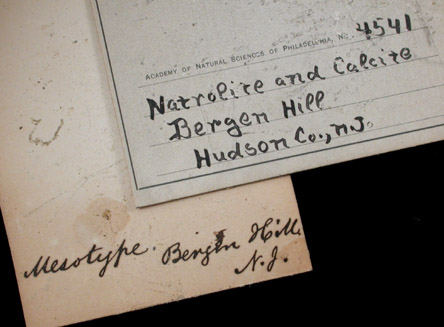 ACADEMY OF NATURAL SCIENCES OF PHILADELPHIA, No. 4541
Natrolite and Calcite
Bergen Hill
Hudson Co., N.J.
Mesotype. Bergen Hill,
N.J.